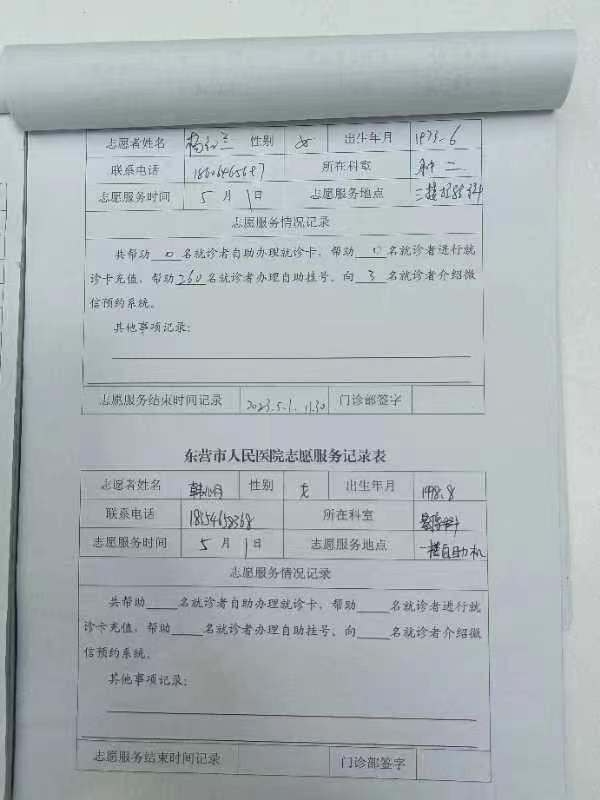 志愿者姓名 杨 兰 性别 女 出生年月 1973.6
联系电话 所在科室
志愿服务时间 5月1日 志愿服务地点 三楼
志愿服务情况记录
共帮助 10 名就诊者自助办理就诊卡，帮助 10 名就诊者进行就
诊卡充值，帮助 260 名就诊者办理自助挂号，向 3 名就诊者介绍微
信预约系统。
其他事项记录：
志愿服务结束时间记录 2023.5.1. 11:30 门诊部签字
东营市人民医院志愿服务记录表
志愿者姓名 韩 性别 女 出生年月 1998.8
联系电话 18154658368 所在科室
志愿服务时间 5月1日 志愿服务地点 一楼自助机
志愿服务情况记录
共帮助____名就诊者自助办理就诊卡，帮助____名就诊者进行就
诊卡充值，帮助____名就诊者办理自助挂号，向____名就诊者介绍微
信预约系统。
其他事项记录：
志愿服务结束时间记录 门诊部签字